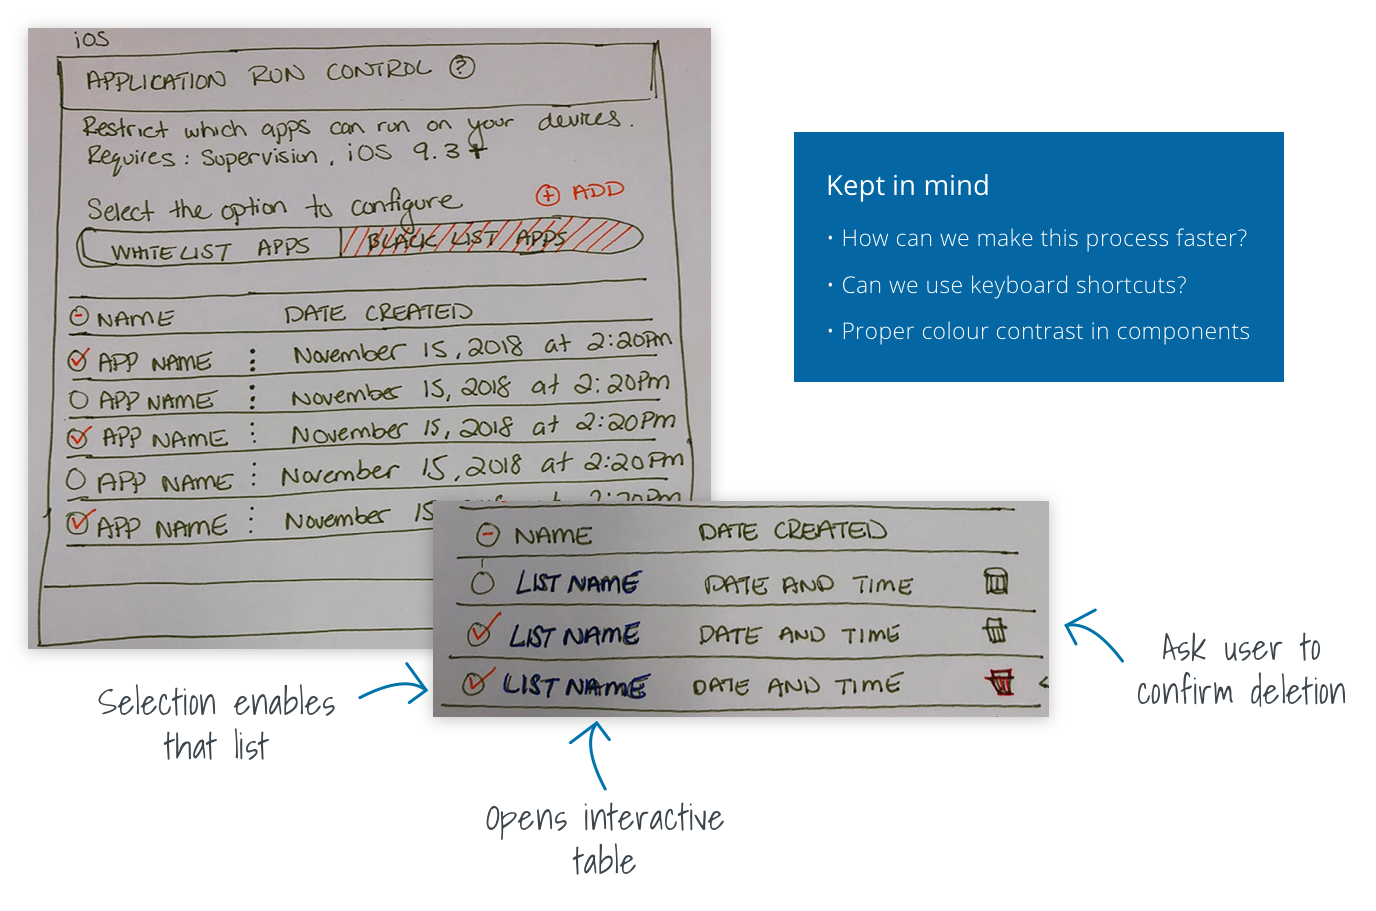 iOS
APPLICATION RUN CONTROL ?
Restrict which apps can run on your devices.
Requires: Supervision, iOS 9.3+
Select the option to configure
+ ADD
WHITELIST APPS BLACK LIST APPS
NAME DATE CREATED
APP NAME November 15, 2018 at 2:20pm
APP NAME November 15, 2018 at 2:20Pm
APP NAME November 15, 2018 at 2:20Pm
APP NAME November 15, 2018 at 2:20Pm
APP NAME November 15
NAME DATE CREATED
LIST NAME DATE AND TIME
LIST NAME DATE AND TIME
LIST NAME DATE AND TIME
Kept in mind
• How can we make this process faster?
• Can we use keyboard shortcuts?
• Proper colour contrast in components
Selection enables
that list
Opens interactive
table
Ask user to
confirm deletion